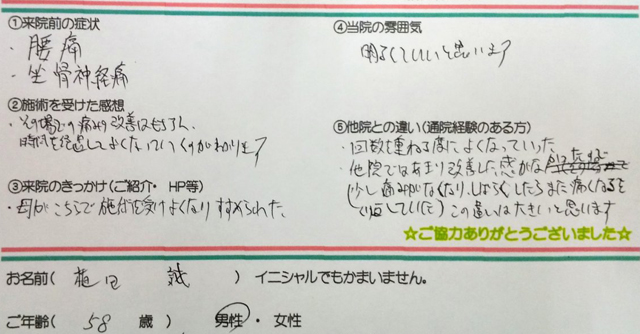 ①来院前の症状
・腰痛
・坐骨神経痛
②施術を受けた感想
・その場での痛みの改善はもちろん
時間を経過してよくなっていくのがわかります
③来院のきっかけ(ご紹介・HP等)
・母がこちらで施術を受けよくなりすすめられた。
④当院の雰囲気
明るくていいと思います
⑤他院との違い(通院経験のある方)
・回数を重ねる度によくなっていった。
・他院ではあまり改善した感がな
少し痛みがなくなり、しばらくしたらまた痛くなるを
(繰り返していた)この違いは大きいと思います
☆ご協力ありがとうございました☆
お名前( 植田 誠 )イニシャルでもかまいません。
ご年齢( 58 歳 ) 男性・女性